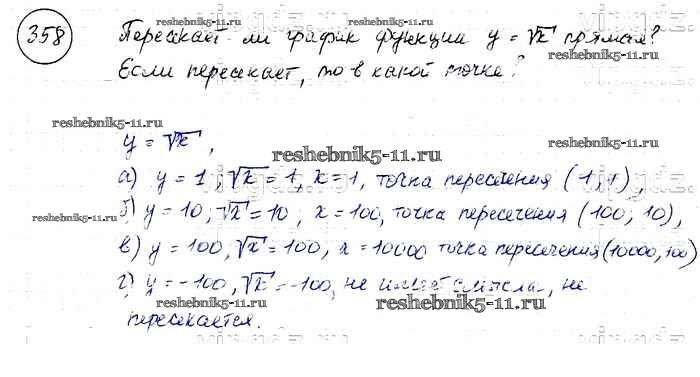 358
Пересекает ли график функции y = √x прямая?
reshebnik5-11.ru
Если пересекает, то в какой точке?
reshebnik5-11.ru
reshebnik5-11.ru
y = √x,
reshebnik5-11.ru
а) y = 1, √x = 1, x = 1, точка пересечения (1, 1),
reshebnik5-11.ru
б) y = 10, √x = 10, x = 100, точка пересечения (100, 10),
reshebnik5-11.ru
в) y = 100, √x = 100, x = 10000 точка пересечения (10000, 100)
г) y = -100, √x = -100, не имеет смысла, не
reshebnik5-11.ru
reshebnik5-11.ru
пересекается.